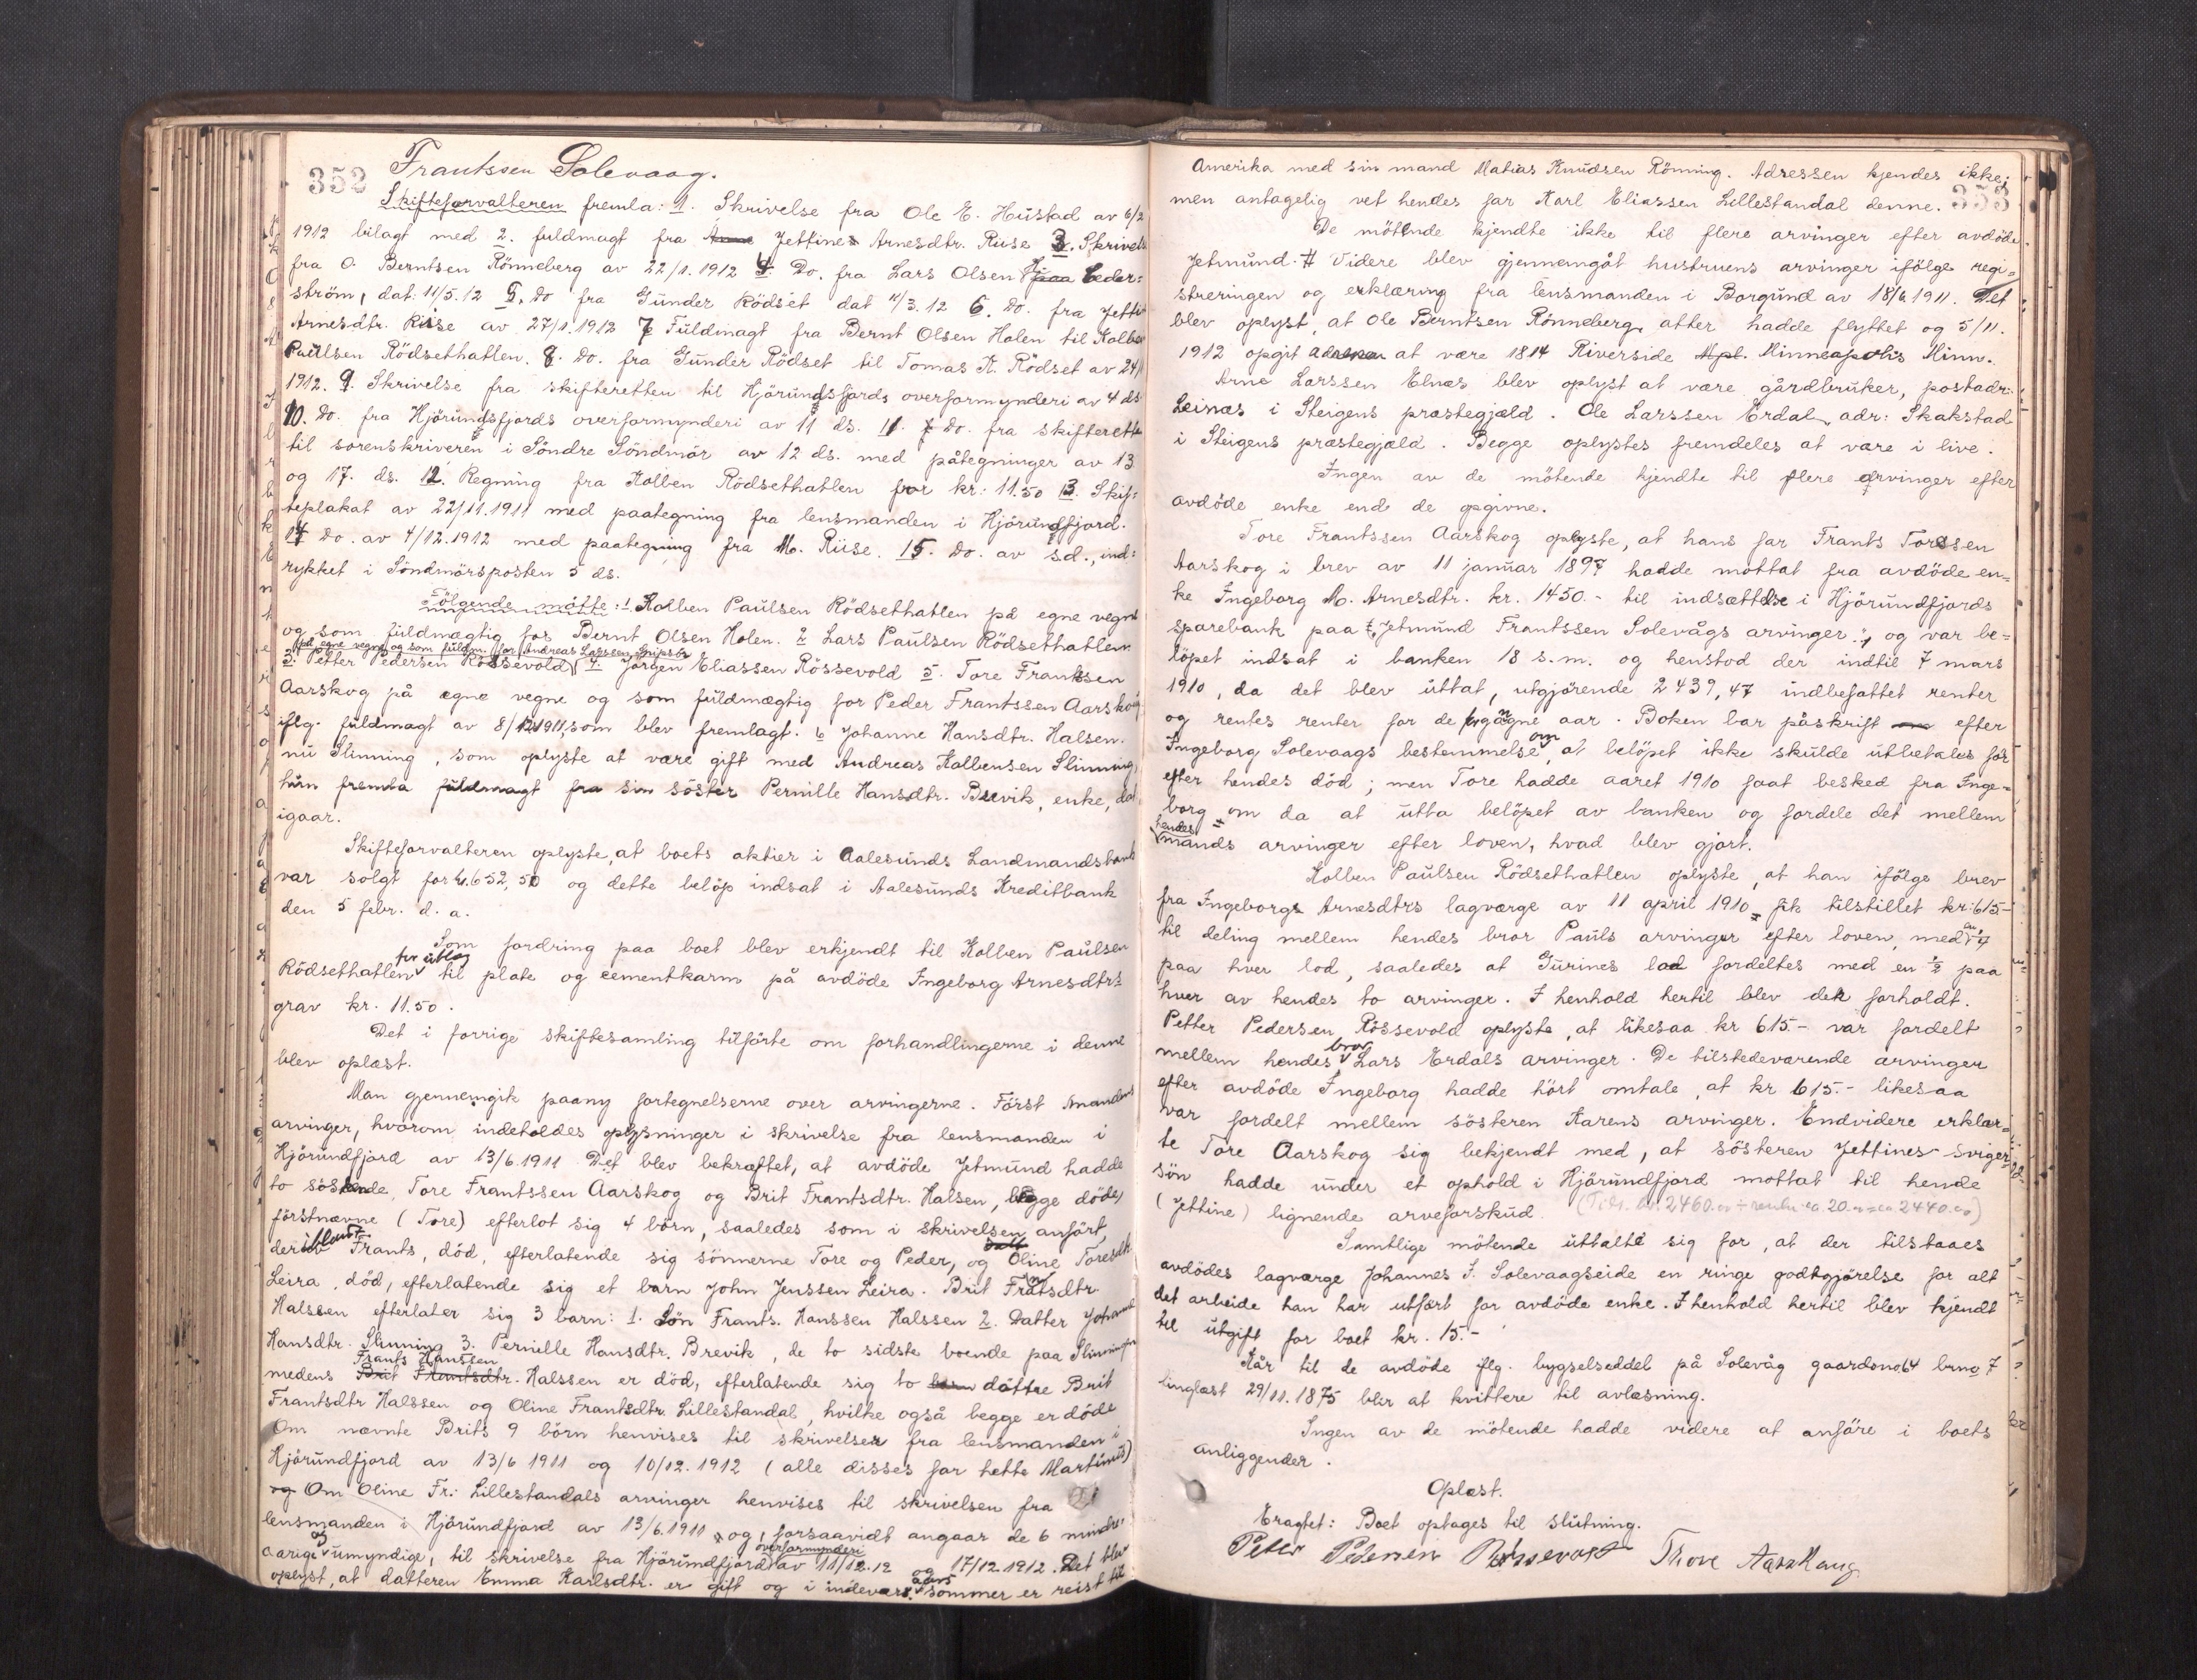 352 Frantssen Solevaag.
Skifteforvalteren fremla: 1. Skrivelse fra Ole E. Hustad av 6/2
1912 bilagt med 2. fuldmagt fra Jettines Arnesdtr. Riise 3. Skrivelse
fra O. Berntsen Rönneberg av 22/1. 1912 4. Do. fra Lars Olsen Ceder=
ström, dat: 11/5. 12 5. Do fra Gunder Rödset dat 11/3. 12 6. Do. fra Jettine
Arnesdtr. Riise av 27/1. 1912 7 Fuldmagt fra Bernt Olsen Holen til Kolben
Paulsen Rödsethatlen. 8. Do. fra Gunder Rödset til Tomas K. Rödset av 24/
1912. 9. Skrivelse fra skifteretten til Hjörundsfjords overformynderi av 4 ds.
10. Do. fra Hjörundsfjords overformynderi av 11 ds. 11. Do. fra skifteretten
til sorenskriveren i Söndre Söndmör av 12 ds. med påtegninger av 13
og 17. ds. 12. Regning fra Kolben Rödsethatlen for kr: 11.50 13. Skif=
teplakat av 22/11. 1911 med paategning fra lensmanden i Hjörundfjord.
14 Do. av 4/12. 1912 med paategning fra M. Riise. 15. Do. av s.d., ind=
rykket i Söndmörsposten 5 ds.
Fölgende mötte: 1. Kolben Paulsen Rödsethatlen på egne vegne
og som fuldmægtig for Bernt Olsen Holen. 2 Lars Paulsen Rödsethatlen
på egne vegne og som fuldm. for Andreas Larssen Snipstr
3. Petter Pedersen Rössevold 4. Jörgen Eliassen Rössevold 5. Tore Frantssen
Aarskog på egne vegne og som fuldmægtig for Peder Frantssen Aarskog
iflg. fuldmagt av 8/12 1911, som blev fremlagt. 6 Johanne Hansdtr. Halsen.
nu Slinning, som oplyste at være gift med Andreas Kolbensen Slinning,
hun fremla fuldmagt fra sin söster Pernille Hansdtr. Brevik, enke, dat.
igaar.
Skifteforvalteren oplyste, at boets aktier i Aalesunds Landmandsbank
var solgt for kr. 652,50 og dette belöp indsat i Aalesunds Kreditbank
den 5 febr. d. a.
Som fordring paa boet blev erkjendt til Kolben Paulsen
Rödsethatlen for utlæg til plate og cementkarm på avdöde Ingeborg Arnesdtrs
grav kr. 11.50.
Det i forrige skiftesamling tilförte om forhandlingerne i denne
blev oplæst.
Man gjennemgik paany fortegnelserne over arvingerne. Först mandens
arvinger, hvorom indeholdes oplysninger i skrivelse fra lensmanden i
Hjörundfjord av 13/6. 1911 Det blev bekræftet, at avdöde Jetmund hadde
to söskende, Tore Frantssen Aarskog og Brit Frantsdtr. Halsen, begge döde,
förstnævne (Tore) efterlot sig 4 börn, saaledes som i skrivelsen anfört,
deriblandt Frants, död, efterlatende sig sönnerne Tore og Peder, og Oline Toresdtr.
Leira, död, efterlatende sig et barn John Jenssen Leira. Brit Frantsdtr.
Halssen efterlater sig 3 barn: 1. Sön Frants. Hanssen Halssen 2. Datter Johanne
Hansdtr. Slinning 3. Pernille Hansdtr. Brevik, de to sidste boende paa Slinningen
medens Frants Hanssen Brit Frantsdtr. Halssen er död, efterlatende sig to barn döttre Brit
Frantsdtr Halssen og Oline Frantsdtr. Lillestandal, hvilke også begge er döde
Om nævnte Brits 9 börn henvises til skrivelser fra lensmanden i
Hjörundfjord av 13/6 1911 og 10/12. 1912 (alle disses far hette Martinus)
og Om Oline Fr: Lillestandals arvinger henvises til skrivelsen fra
lensmanden i Hjörundfjord av 13/6. 1911 og, forsaavidt angaar de 6 mindre
aarige og umyndige, til skrivelse fra Hjörundfjord overformynderi av 11/12. 12 og 17/12. 1912. Det blev
oplyst, at datteren Emma Karlsdtr. er gift og i indevær. aars sommer er reist til
Amerika med sin mand Matias Knudsen Rönning. Adressen kjendes ikke;
men antagelig vet hendes far Karl Eliassen Lillestandal denne. 353
De mötende kjendte ikke til flere arvinger efter avdöde
Jetmund. # Videre blev gjennemgåt hustruens arvinger ifölge regi=
streringen og erklæring fra lensmanden i Borgund av 18/6 1911. Det
blev oplyst, at Ole Berntsen Rönneberg, atter hadde flyttet og 5/11.
1912 opgit adressen at være 1814 Riverside Mpl. Minneapolis Minn.
Arne Larssen Elnæs blev oplyst at være gårdbruker, postadr:
Leinæs i Steigens præstegjæld. Ole Larssen Erdal, adr: Skakstad
i Steigens præstegjæld. Begge oplystes fremdeles at være i live.
Ingen av de mötende kjendte til flere arvinger efter
avdöde enke end de opgivne.
Tore Frantssen Aarskog oplyste, at hans far Frants Toressen
Aarskog i brev av 11 januar 1897 hadde mottat fra avdöde en=
ke Ingeborg M. Arnesdtr. kr. 1450.- til indsættelse i Hjörundfjords
sparebank paa "Jetmund Frantssen Solevågs arvinger", og var be=
löpet indsat i banken 18 s.m. og henstod der indtil 7 mars
1910, da det blev uttat, utgjörende 2439,47 indbefattet renter
og rentes renter for de gangne aar. Boken bar påskrift efter
Ingeborg Solevaags bestemmelse om, at belöpet ikke skulde utbetales för
efter hendes död; men Tore hadde aaret 1910 faat besked fra Inge=
borg om da at utta belöpet av banken og fordele det mellem
hendes mands arvinger efter loven, hvad blev gjort.
Kolben Paulsen Rödsethatlen oplyste, at han ifölge brev
fra Ingeborgs Arnesdtrs lagværge av 11 april 1910 fik tilstillet kr: 615.-
til deling mellem hendes bror Pauls arvinger efter loven, med 1/7
paa hver lod, saaledes at Gurines lod fordeltes med en 1/2 paa
hver av hendes to arvinger. I henhold hertil blev det forholdt.
Petter Pedersen Rössevold oplyste, at likesaa kr 615.- var fordelt
mellem hendes bror Lars Erdals arvinger. De tilstedeværende arvinger
efter avdöde Ingeborg hadde hört omtale, at kr 615.- likesaa
var fordelt mellem sösteren Karens arvinger. Endvidere erklær=
te Tore Aarskog sig bekjendt med, at sösteren Jettines sviger=
sön hadde under et ophold i Hjörundfjord mottat til hende
(Jettine) lignende arveforskud.
Samtlige mötende uttalte sig for, at der tilstaaes
avdödes lagværge Johannes J. Solevaagseide en ringe godtgjörelse for alt
det arbeide han har utfört for avdöde enke. I henhold hertil blev kjendt
til utgift for boet kr. 15.-
Kår til de avdöde iflg. bygselseddel på Solevåg gaardsno 64 brno 7
tinglæst 29/11. 1875 blir at kvittere til avlæsning.
Ingen av de mötende hadde videre at anföre i boets
anliggender.
Oplæst.
Eragtet: Boet optages til slutning.
Petter Pedersen Røssevold Thore Aarskaug